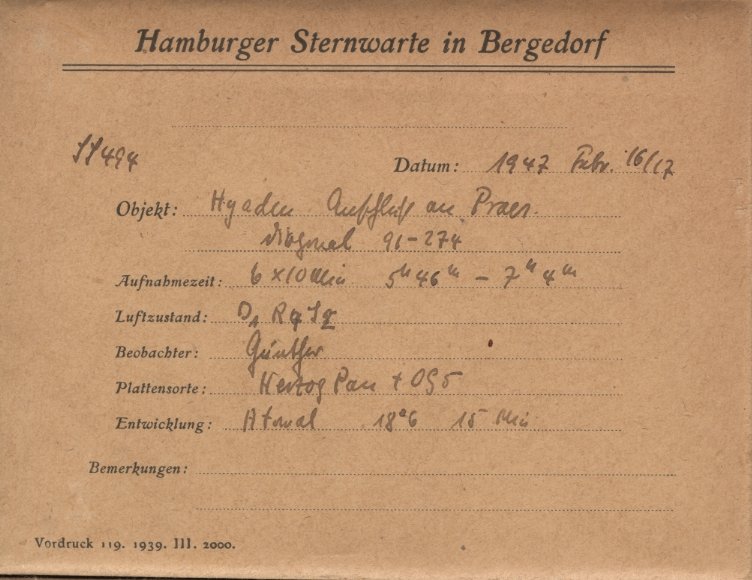 Hamburger Sternwarte in Bergedorf
494 Datum: 1947 Febr. 16/17
Objekt: Hyaden Anschluß an Praes.
diagonal 91-274
Aufnahmezeit: 6 x 10 Min 5ʰ 46ᵐ – 7ʰ 4ᵐ
Luftzustand:
Beobachter: Günther
Plattensorte: Herzog Pan + OG5
Entwicklung: Atomal 18°6 15 Min
Bemerkungen:
Vordruck 119. 1939. III. 2000.